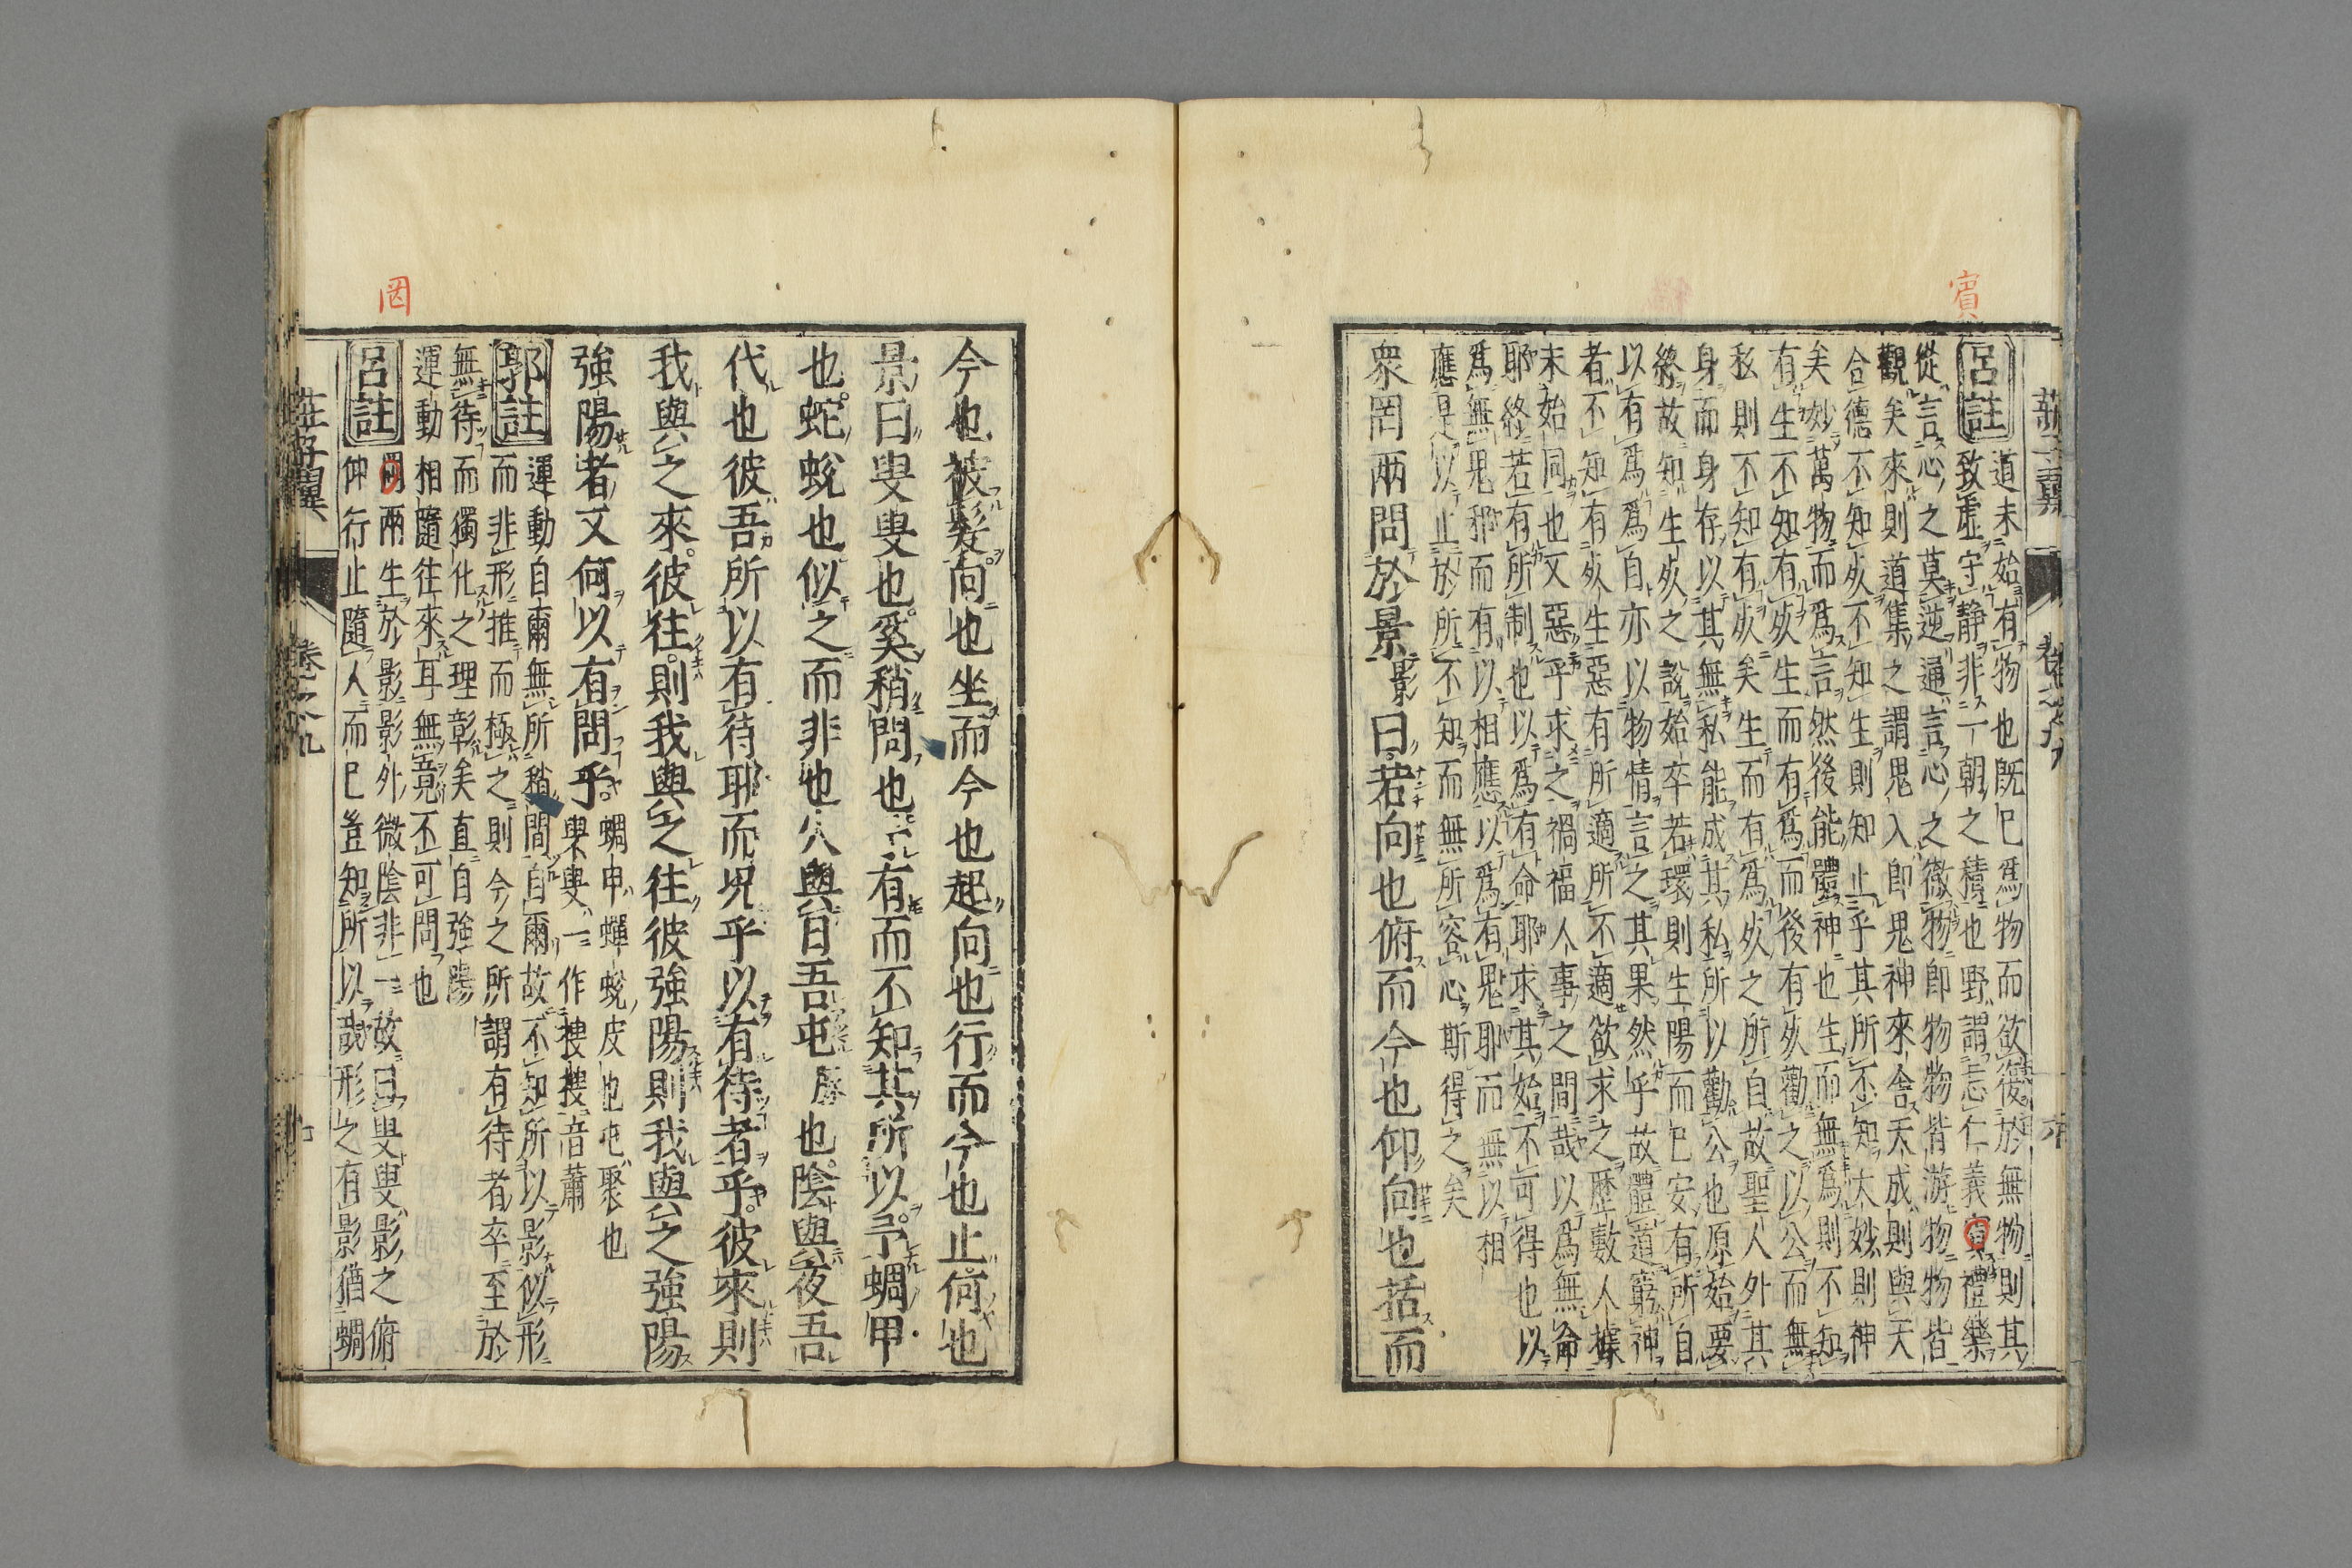 賓
呂註
道未始有物也既已爲物而欲復於無物則其
致虛守靜非一朝之積也野謂忘仁義賓禮樂
從言心之莫逆通言心之微物即物物皆游物物皆
觀矣來則道集之謂鬼入即鬼神來舍天成則與天
合德不知死不知生則知止乎其所不知大妙則神
矣妙萬物而爲言然後能體神也生而無爲則不知
有生不知有死生而有爲而後有死勸之以公而無
私則不知有死矣生而有爲死之所自故聖人外其
身而身存以其無私能成其私所以勸公也原始要
終故知生死之說始卒若環則生陽而已安有所自
以有爲爲自亦以物情言之其果然乎故體道窮神
者不知有死生惡有所適所不適欲求之歷數人據
未始同也又惡乎求之禍福人事之間哉以爲無命
耶終若有所制也以爲有命耶求其始不可得也以
爲無鬼邪而有以相應以爲有鬼耶而無以相
應是以止於所不知而無所容心斯得之矣
衆罔兩問於景影曰若向也俯而今也仰向也括而
今也被髮向也坐而今也起向也行而今也止何也
景曰叟叟也奚稍問也予有而不知其所以予蜩甲
也蛇蛻也似之而非也火與日吾屯也陰與夜吾
代也彼吾所以有待耶而況乎以有待者乎彼來則
我與之來彼往則我與之往彼強陽則我與之強陽
強陽者又何以有問乎
蜩甲蟬蛻皮也屯聚也
叟叟一作搜搜音蕭
郭註
運動自爾無所稍問自爾故不知所以影似形
而非形推而極之則今之所謂有待者卒至於
無待而獨化之理彰矣直自強陽
運動相隨往來耳無意不可問也
罔
呂註
罔兩生於影影外微陰非一故曰叟叟影之俯
仰行止隨人而已豈知所以哉形之有影猶蜩
莊子翼
卷之九